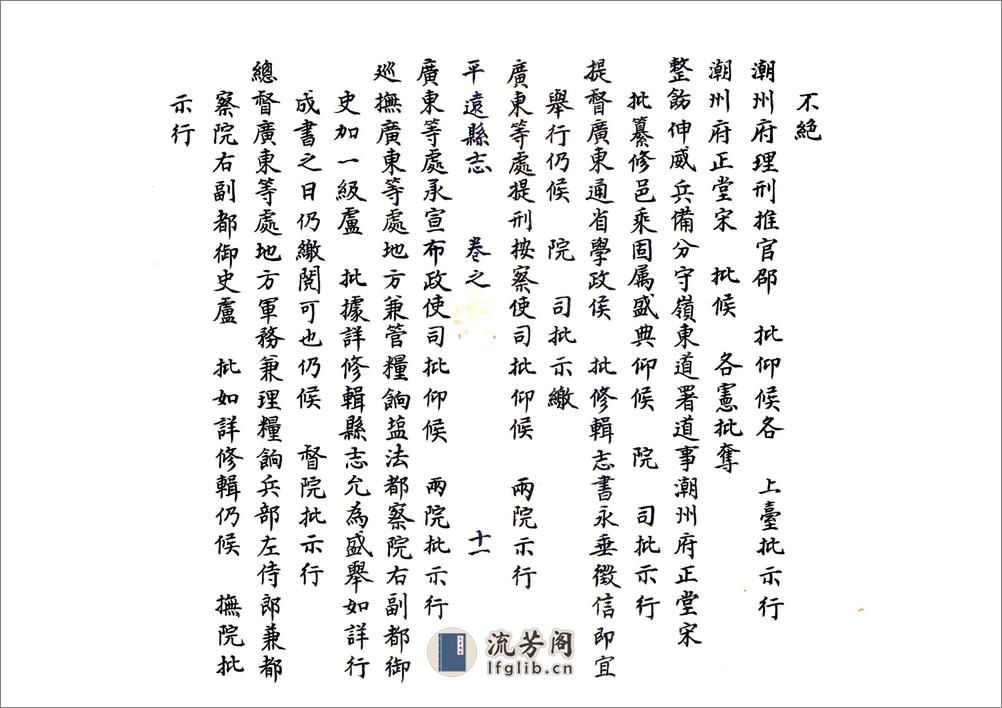 不絕
潮州府理刑推官邵　批仰候各　上臺批示行
潮州府正堂宋　批候　各憲批奪
整飭伸威兵備分守嶺東道署道事潮州府正堂宋
批纂修邑乘固属盛典仰候　院　司批示行
提督廣東通省學政侯　批修輯志書永垂徵信即宜
舉行仍候　院　司批示繳
廣東等處提刑按察使司批仰候　兩院示行
平遠縣志　卷之　十一
廣東等處承宣布政使司批仰候　兩院批示行
巡撫廣東等處地方兼管糧餉盐法都察院右副都御
史加一級盧　批據詳修輯縣志允為盛舉如詳行
成書之日仍繳閱可也仍候　督院批示行
總督廣東等處地方軍務兼理糧餉兵部左侍郎兼都
察院右副都御史盧　批如詳修輯仍候　撫院批
示行
流芳阁
lfglib.cn